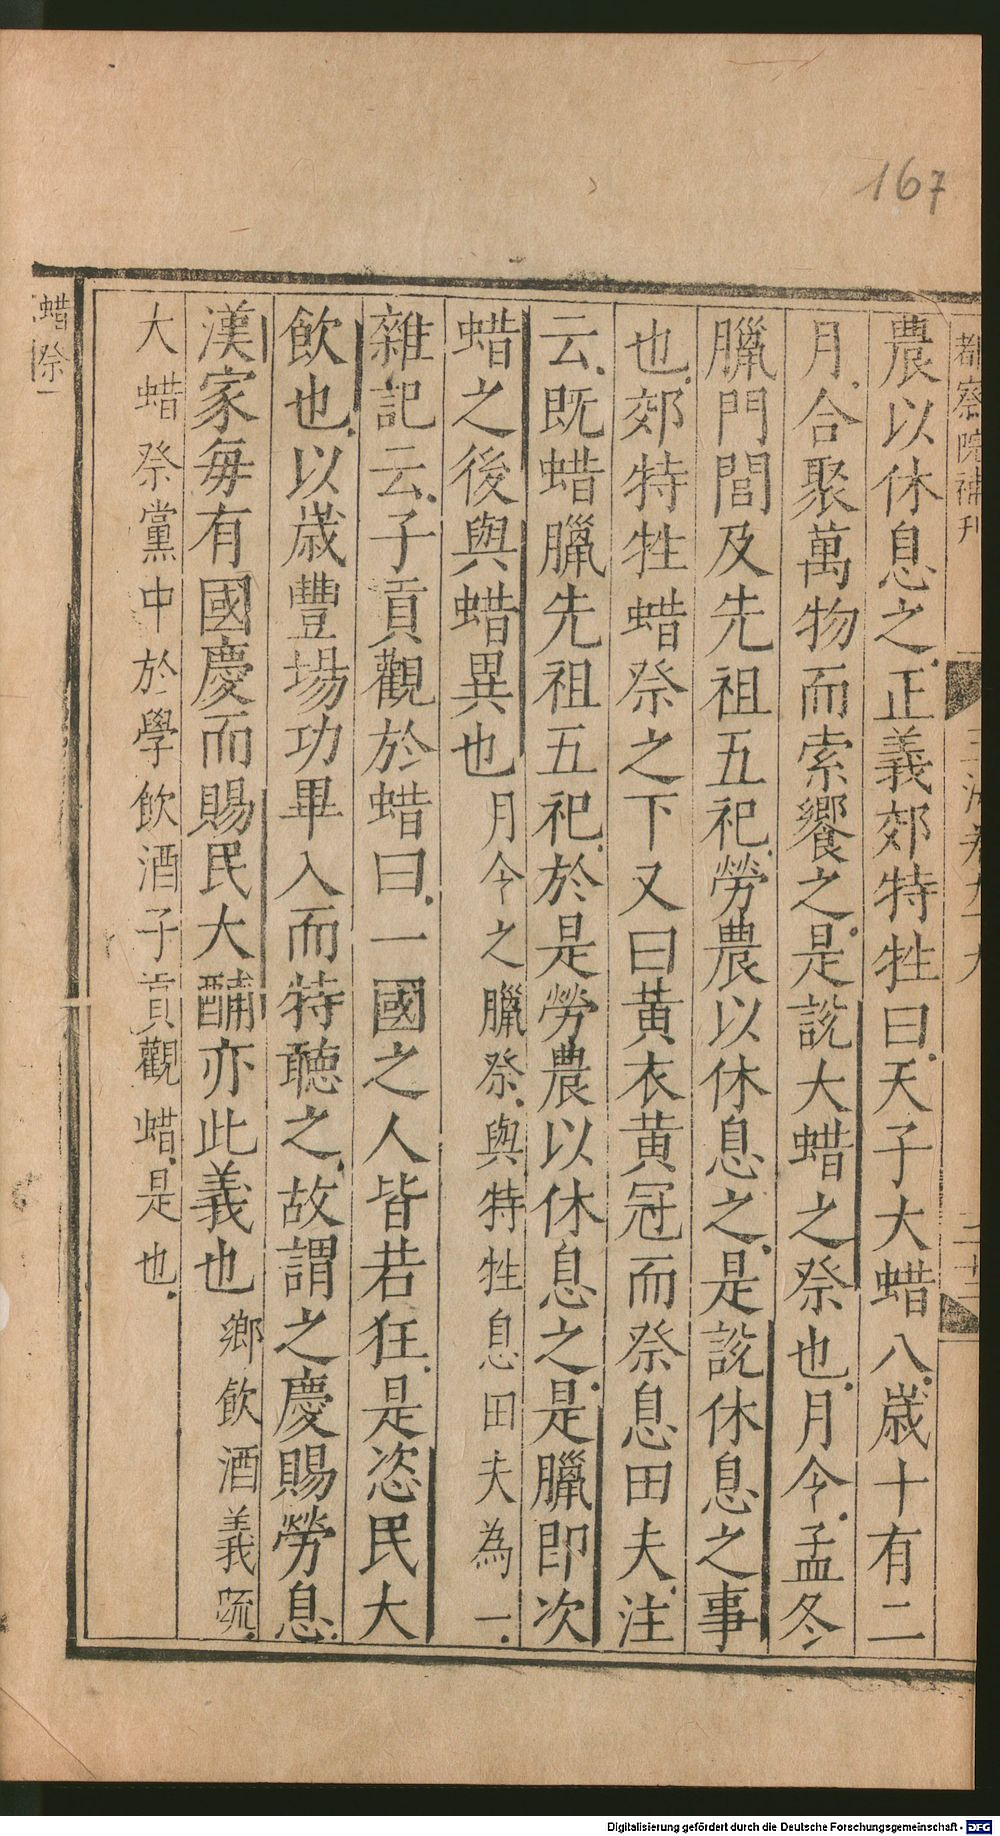 167
都察院補刊
農以休息之正義郊特牲曰天子大蜡八歲十有二
月合聚萬物而索饗之是說大蜡之祭也月令孟冬
臘門閭及先祖五祀勞農以休息之是說休息之事
也郊特牲蜡祭之下又曰黃衣黃冠而祭息田夫注
云既蜡臘先祖五祀於是勞農以休息之是臘即次
蜡之後與蜡異也月令之臘祭與特牲息田夫為一
雜記云子貢觀於蜡曰一國之人皆若狂是恣民大
飲也以歲豐場功畢入而特聽之故謂之慶賜勞息
漢家每有國慶而賜民大酺亦此義也鄉飲酒義疏
大蜡祭黨中於學飲酒子貢觀蜡是也
蜡祭一
Digitalisierung gefördert durch die Deutsche Forschungsgemeinschaft - DFG